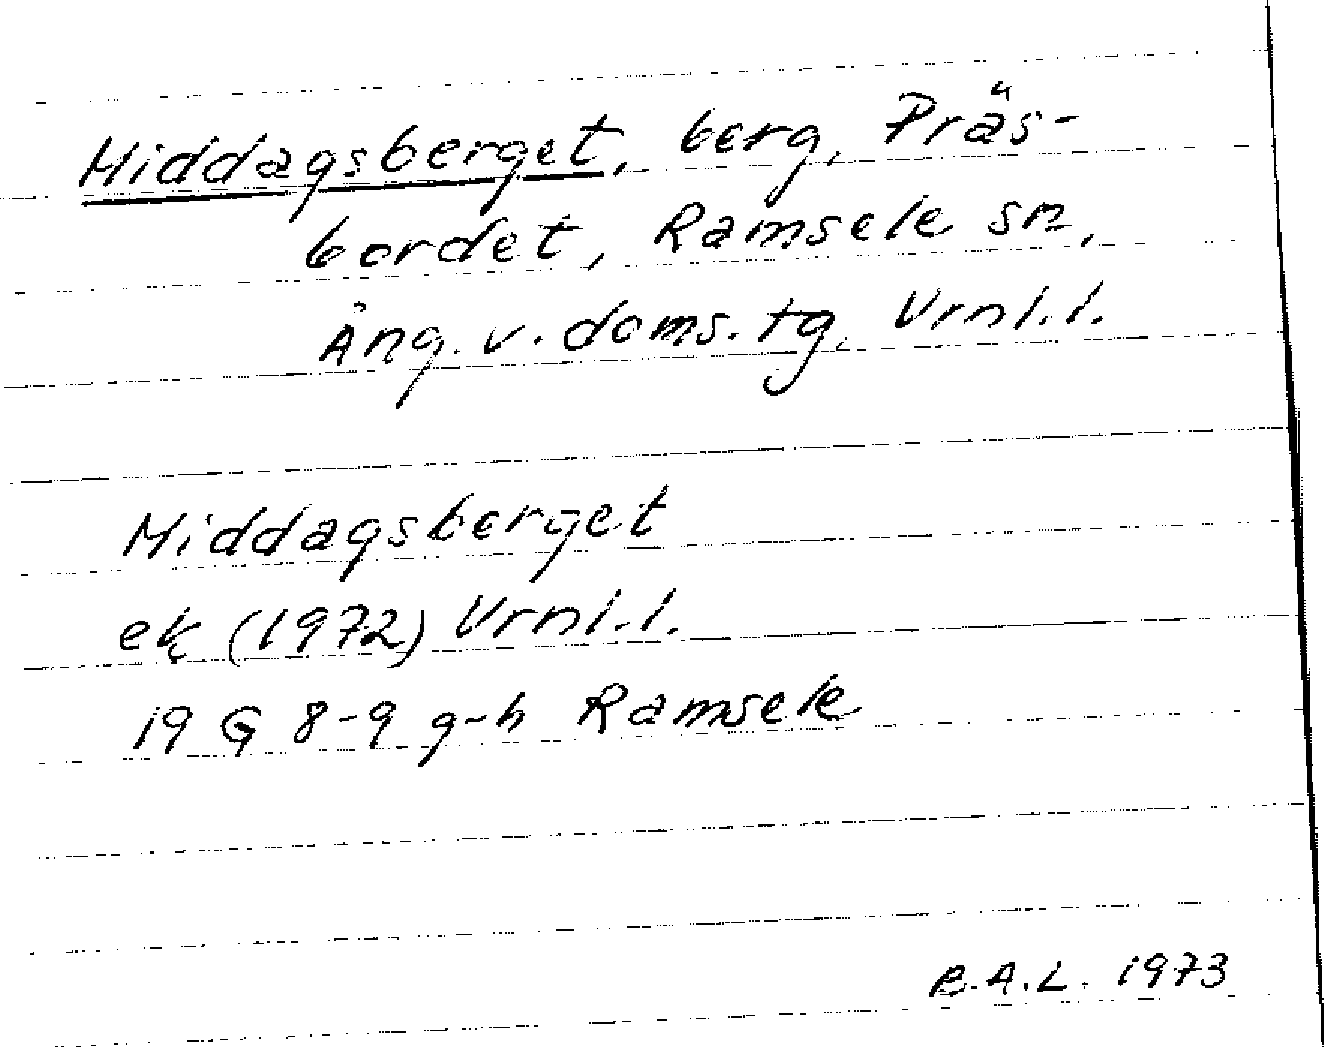 Middagsberget, berg, Präs-
bordet, Ramsele sn,
Ång. v. doms. tg. Vrnl.l.
Middagsberget
ek (1972) Vrnl.l.
19 G 8-9 g-h Ramsele
R.A.L. 1973